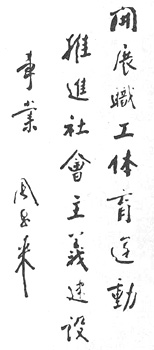 開展職工体育运動
推進社會主義建設
事業
周恩来